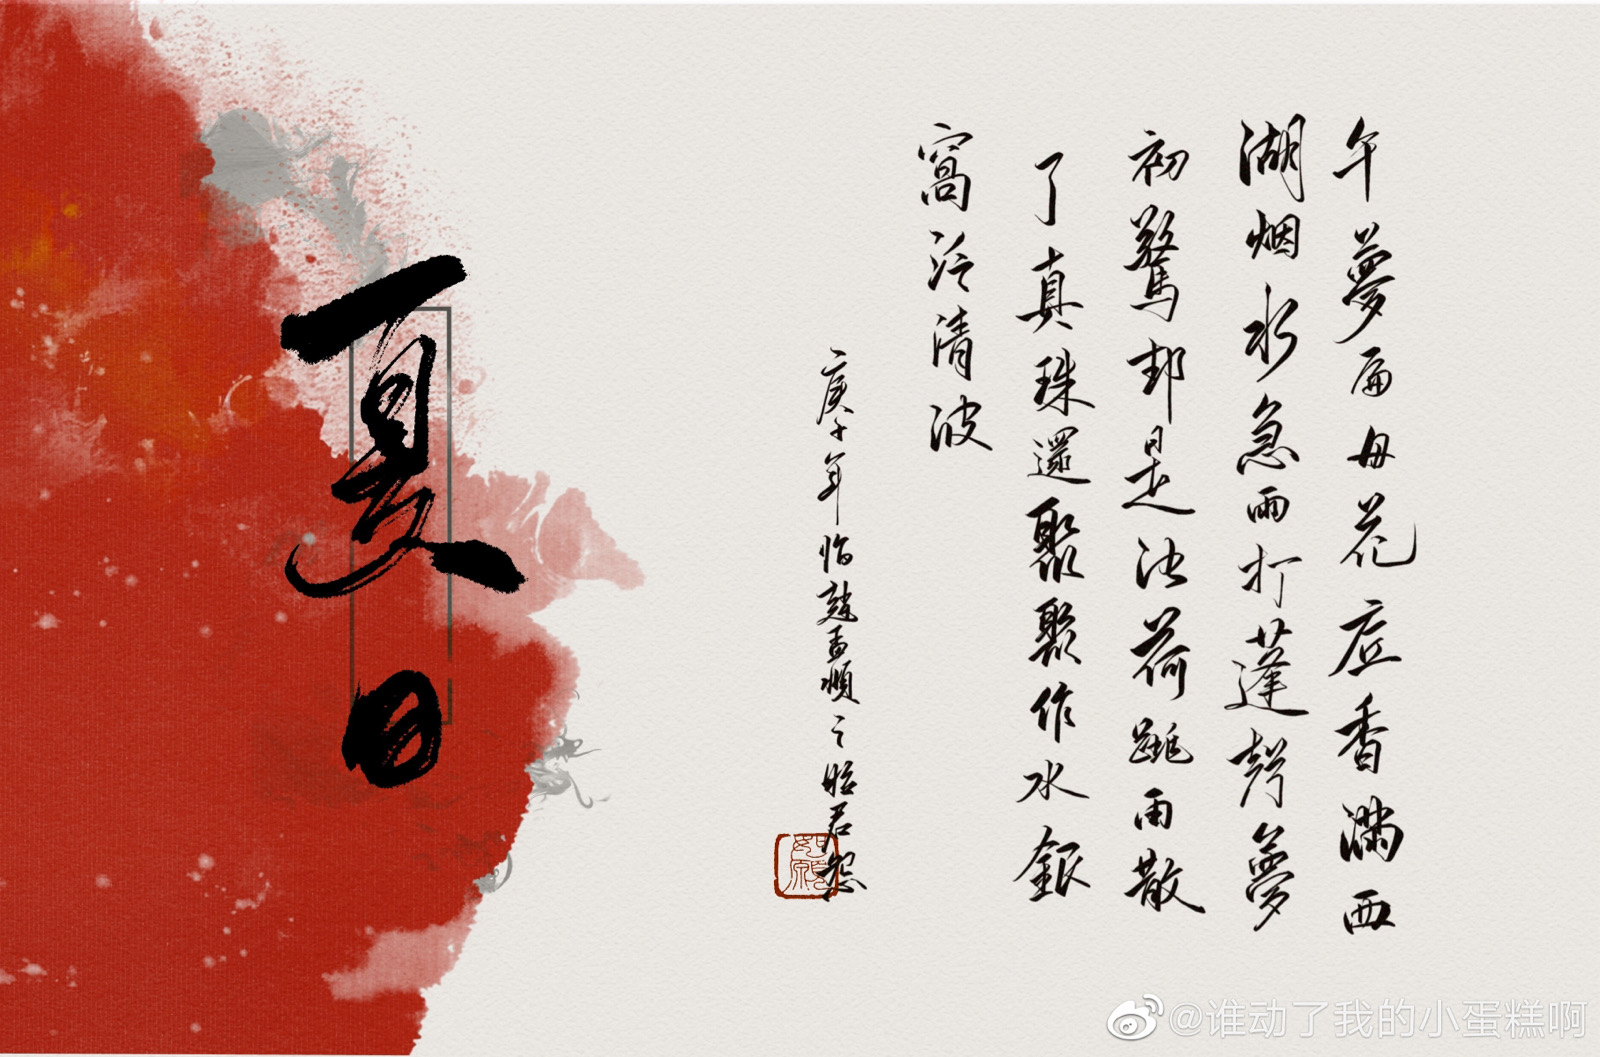 夏日
午夢扁舟花底香滿西
湖烟水急雨打蓬聲夢
初驚却是池荷跳雨散
了真珠還聚聚作水銀
窩泛清波
庚子年临趙孟頫之昭君怨
@谁动了我的小蛋糕啊